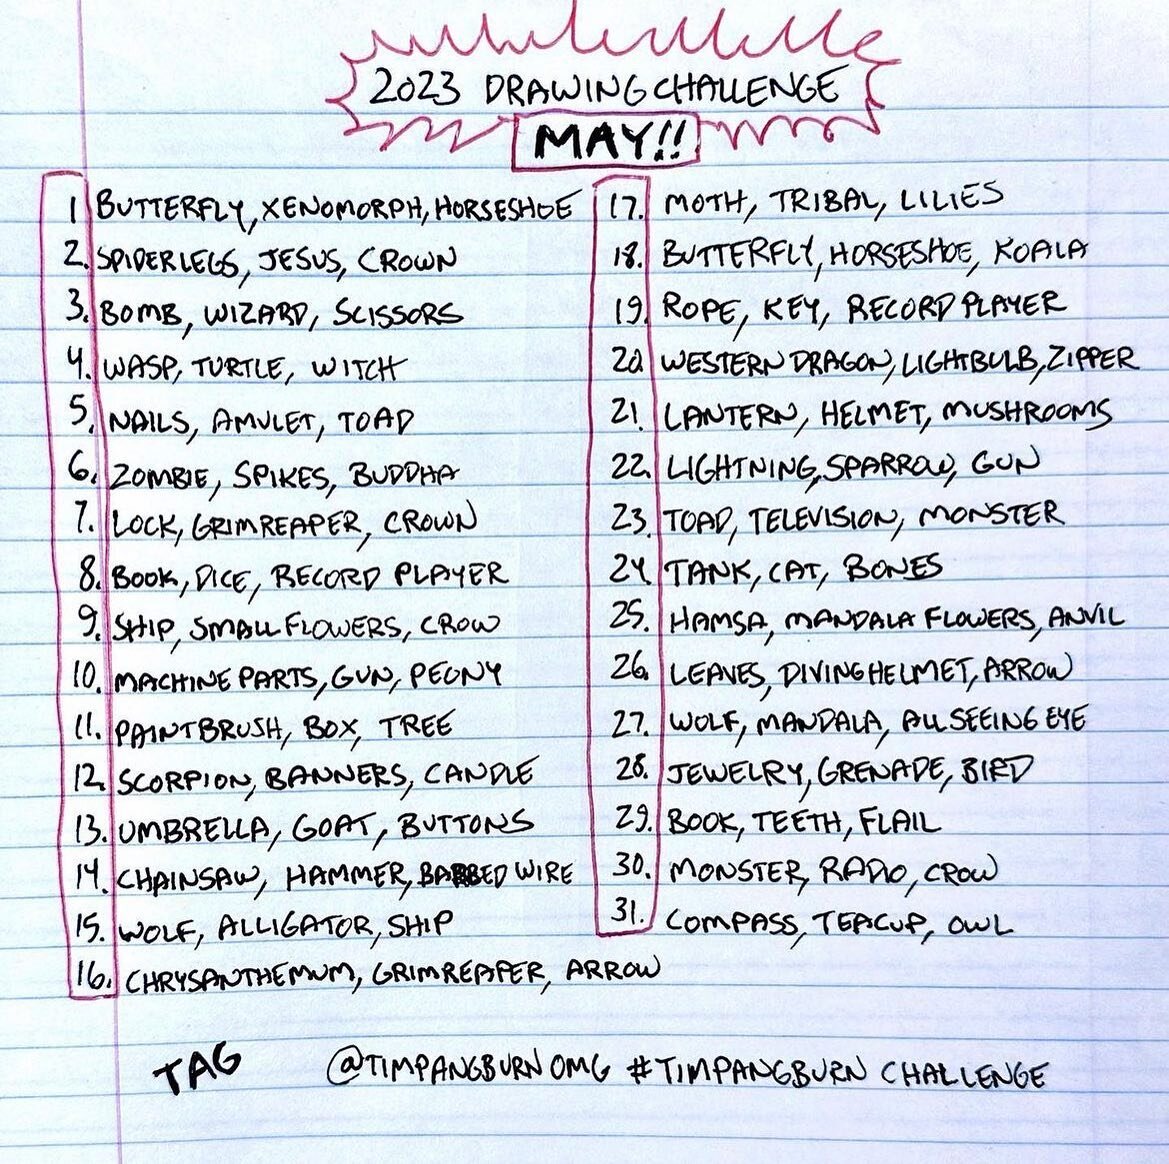 2023 DRAWING CHALLENGE
MAY!!
1 BUTTERFLY, XENOMORPH, HORSESHOE
2. SPIDER LEGS, JESUS, CROWN
3. BOMB, WIZARD, SCISSORS
4. WASP, TURTLE, WITCH
5. NAILS, AMULET, TOAD
6. ZOMBIE, SPIKES, BUDDHA
7. LOCK, GRIM REAPER, CROWN
8. BOOK, DICE, RECORD PLAYER
9. SHIP, SMALL FLOWERS, CROW
10. MACHINE PARTS, GUN, PEONY
11. PAINTBRUSH, BOX, TREE
12. SCORPION, BANNERS, CANDLE
13. UMBRELLA, GOAT, BUTTONS
14. CHAINSAW, HAMMER, BARBED WIRE
15. WOLF, ALLIGATOR, SHIP
16. CHRYSANTHEMUM, GRIM REAPER, ARROW
17. MOTH, TRIBAL, LILIES
18. BUTTERFLY, HORSESHOE, KOALA
19. ROPE, KEY, RECORD PLAYER
20. WESTERN DRAGON, LIGHTBULB, ZIPPER
21. LANTERN, HELMET, MUSHROOMS
22. LIGHTNING, SPARROW, GUN
23. TOAD, TELEVISION, MONSTER
24. TANK, CAT, BONES
25. HAMSA, MANDALA FLOWERS, ANVIL
26. LEAVES, DIVING HELMET, ARROW
27. WOLF, MANDALA, ALL SEEING EYE
28. JEWELRY, GRENADE, BIRD
29. BOOK, TEETH, FLAIL
30. MONSTER, RADIO, CROW
31. COMPASS, TEACUP, OWL
TAG @TIMPANGBURNOMG #TIMPANGBURN CHALLENGE